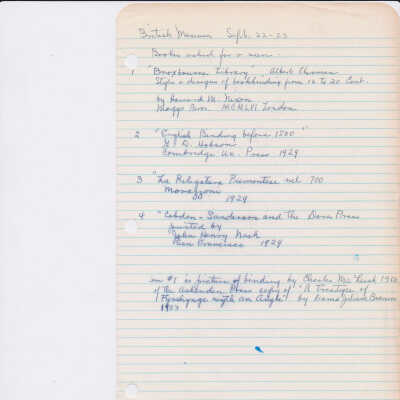 British Museum Sept. 22-23
Books asked for & seen -
1 "Broxbourne Library - Albert Ehrman
Style & designs of bookbinding from 12 to 20 Cent.
by Howard M. Nixon
Maggs Bros. MCMLVI London
2 "English Binding before 1500"
G. D. Hobson
Cambridge Un. Press 1929
3 "La Religatura Piemontese nel 700
Monazzoni
1929
4 "Cobden-Sanderson and The Doves Press
printed by
John Henry Nash
San Francisco 1929
in #1 is picture of binding by Charles Mc Leish 1910
of the Ashenden Press copy of "A Treatise of
Fysshynge wyth an Angle" by Dame Juliana Berners
1903